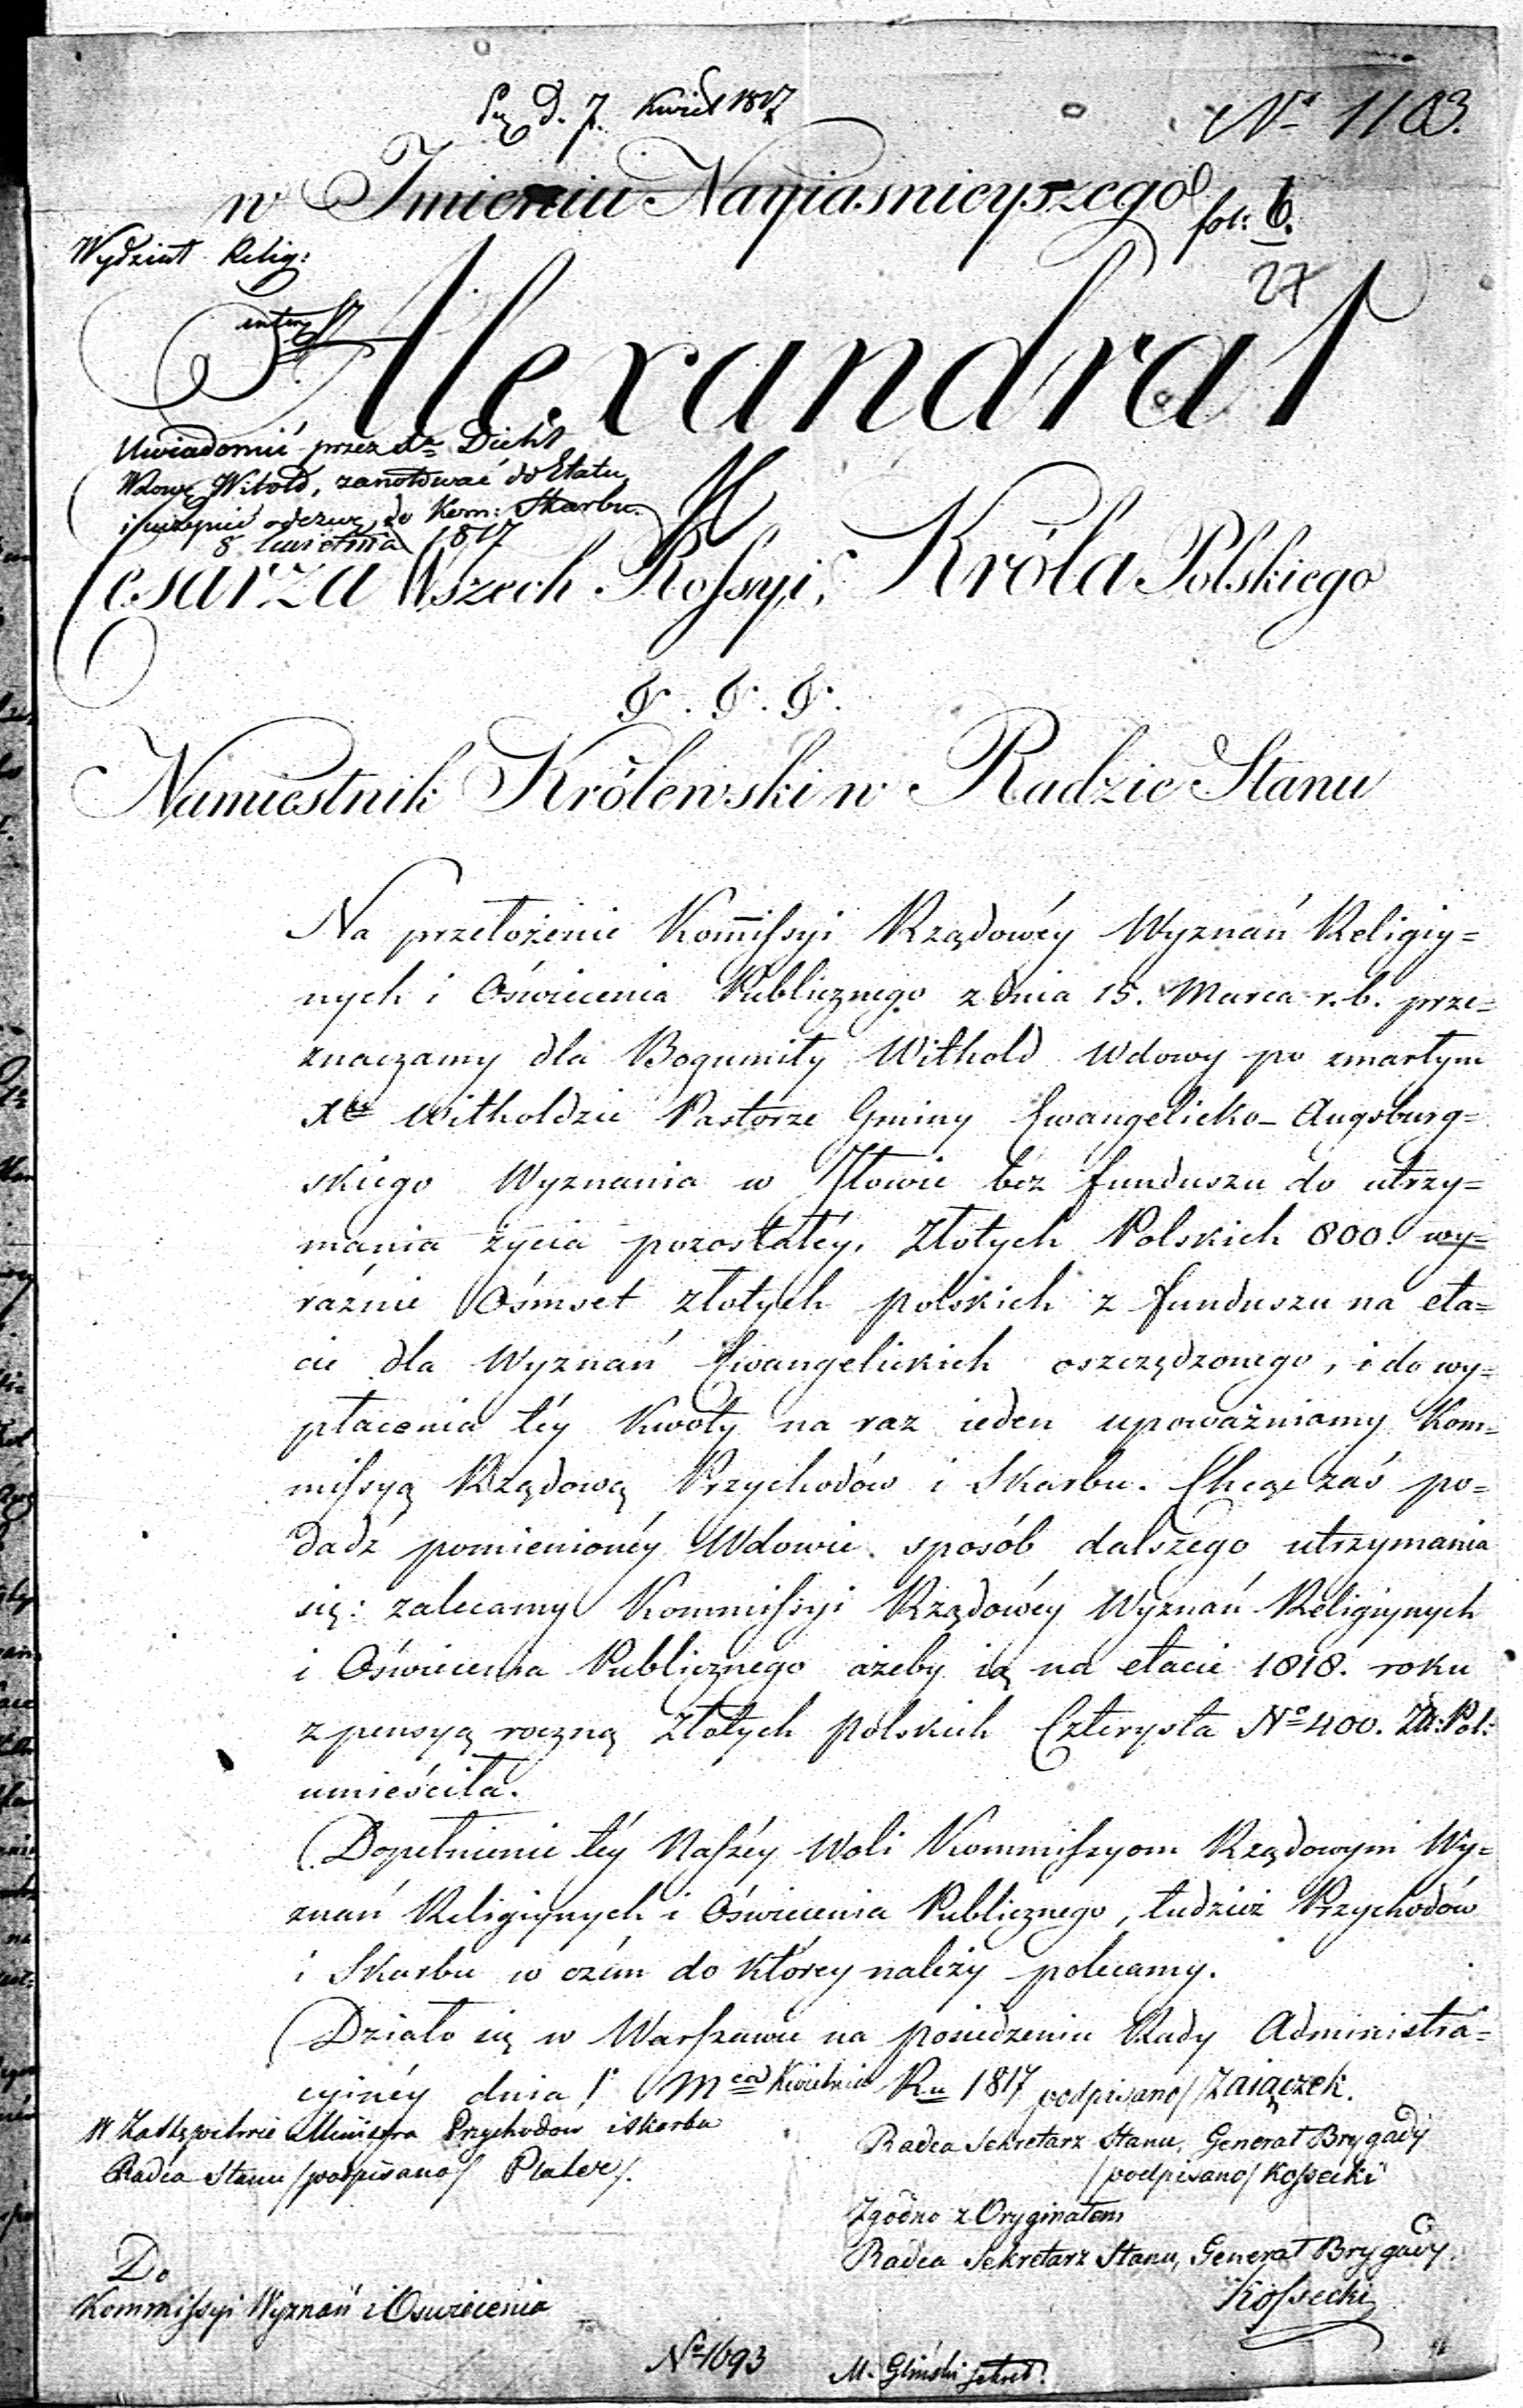 d. 7. Kwiet 1817
No 1103.
w Imieniu Nayiasnieyszego
fol: 6.
27
Wydział Relig:
Alexandra I
Uwiadomić przez Dziek
Wdowę Witold, zanotować do Etatu
i uczynić odezwę do Kom: Skarbu.
8 kwietnia 1817
Cesarza Wszech Rossyi, Króla Polskiego
&. &. &.
Namiestnik Królewski w Radzie Stanu
Na przełożenie Kom̄issyi Rządowéy Wyznań Religiy=
nych i Oświecenia Publicznego z dnia 15. Marca r. b. prze=
znaczamy dla Bogumiły Withold Wdowy po zmarłym
Xdz Witholdzie Pastorze Gminy Ewangelicko-Augsburg=
skiego Wyznania w Iłowie bez funduszu do utrzy=
mania życia pozostałéy, Złotych Polskich 800. wy=
raźnie Ośmset złotych polskich z funduszu na eta=
cie dla Wyznań Ewangelickich oszczędzonego, i do wy=
płacenia téy Kwoty na raz ieden upoważniamy Kom=
missyą Rządową Przychodów i Skarbu. Chcąc zaś po=
dadź pomienionéy Wdowie sposób dalszego utrzymania
się: zalecamy Kommissyi Rządowéy Wyznań Religiynych
i Oświecenia Publicznego ażeby ią na etacie 1818. roku
z pensyą roczną Złotych polskich Czterysta No 400. Zł: Pol:
umieściła.
Dopełnienie téy Naszéy Woli Kommissyom Rządowym Wy=
znań Religiynych i Oświecenia Publicznego, tudzież Przychodów
i Skarbu w czém do któréy należy polecamy.
Działo się w Warszawie na posiedzeniu Rady Administra=
cyinéy dnia 1o Mca Kwietnia Ru 1817 podpisano/ Zaiączek.
W Zastępstwie Ministra Przychodow i Skarbu
Radca Stanu /podpisano/ Plater/.
Radca Sekretarz Stanu, Generał Brygady
/podpisano/ Kossecki
Zgodno z Oryginałem
Radca Sekretarz Stanu, Generał Brygady
Kossecki
Do
Kommissyi Wyznań i Oswiecenia
No 1693
M. Gliński sekret.